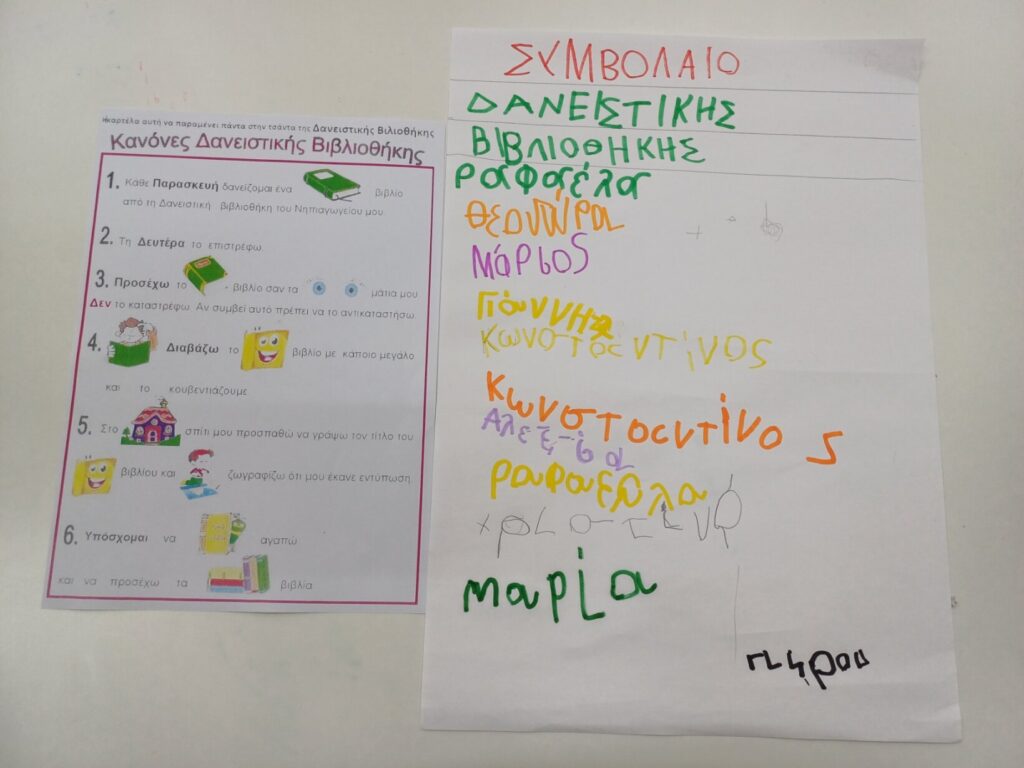 Η καρτέλα αυτή να παραμένει πάντα στην τσάντα της Δανειστικής Βιλιοθήκης
Κανόνες Δανειστικής Βιβλιοθήκης
1. Κάθε Παρασκευή δανείζομαι ένα βιβλίο
από τη Δανειστική βιβλιοθήκη του Νηπιαγωγείου μου.
2. Τη Δευτέρα το επιστρέφω.
3. Προσέχω το βιβλίο σαν τα μάτια μου
Δεν το καταστρέφω. Αν συμβεί αυτό πρέπει να το αντικαταστήσω.
4. Διαβάζω το βιβλίο με κάποιο μεγάλο
και το κουβεντιάζουμε.
5. Στο σπίτι μου προσπαθώ να γράψω τον τίτλο του
βιβλίου και ζωγραφίζω ότι μου έκανε εντύπωση.
6. Υπόσχομαι να αγαπώ
και να προσέχω τα βιβλία
ΣΥΜΒΟΛΑΙΟ
ΔΑΝΕΙΣΤΙΚΗΣ
ΒΙΒΛΙΟΘΗΚΗΣ
ραφαέλα
Μάριος
Γιάννης
Κωνσταντίνος
Κωνσταντίνος
Αλεξία
ραφαέλα
μαρία